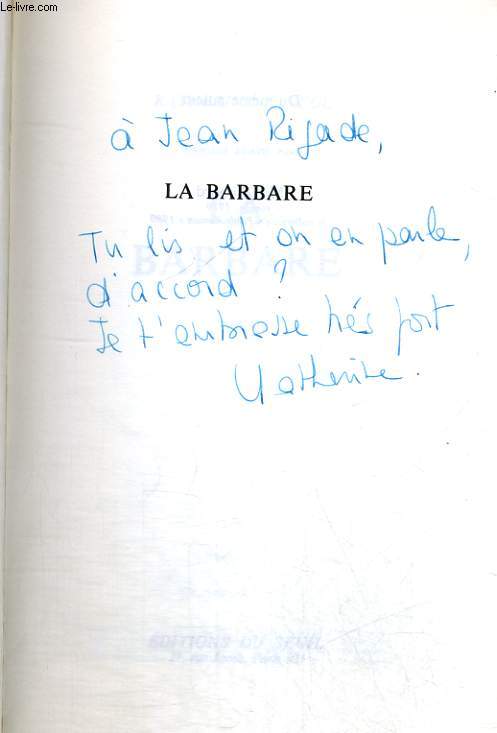 Le-livre.com
à Jean Rigade,
LA BARBARE
Tu lis et on en parle,
d'accord ?
Je t'embrasse très fort
Katherine.
BARBARE